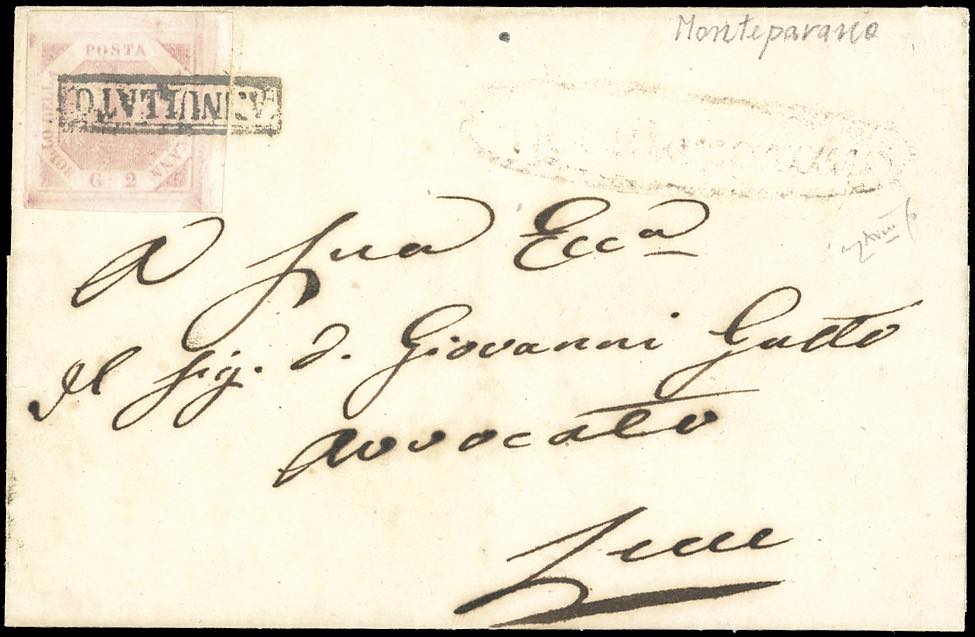 Monteparano
POSTA
BOLLO DELLA
ANNULLATO
G. 2
A Sua Ecca
Il Sig. D. Giovanni Gatto
Avvocato
Lecce